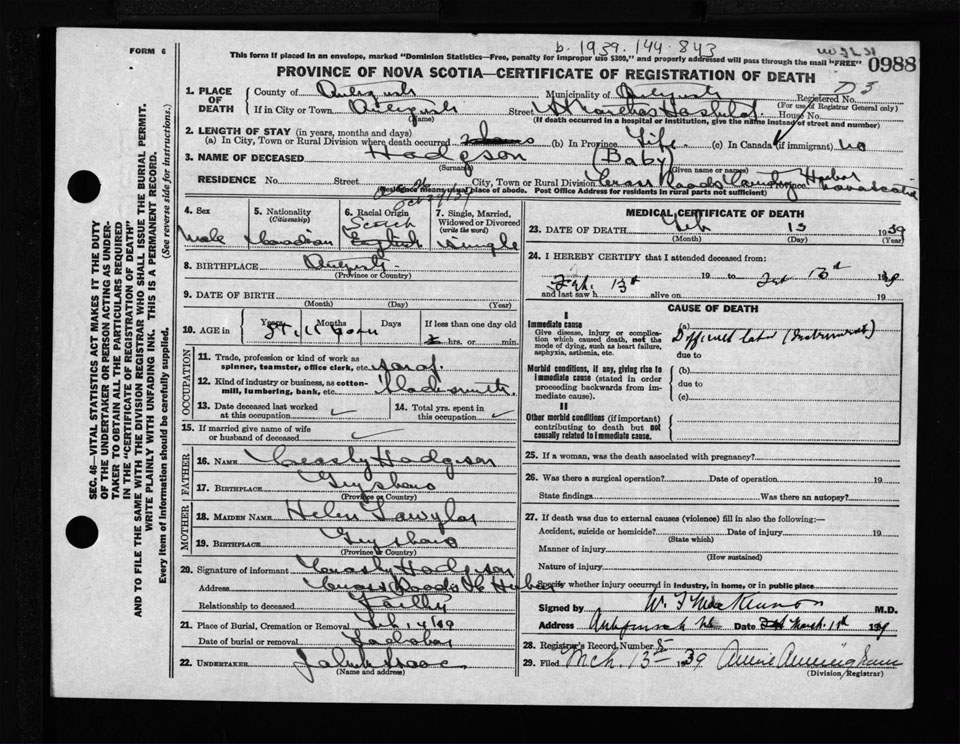 b. 1939. 144-843
FORM 6
This form if placed in an envelope, marked "Dominion Statistics—Free, penalty for improper use $300," and properly addressed will pass through the mail "FREE"
0988
PROVINCE OF NOVA SCOTIA—CERTIFICATE OF REGISTRATION OF DEATH
1. PLACE OF DEATH
County of
Municipality of
Registered No.
(For use of Registrar General only)
If in City or Town
Street
House No.
(Name)
(If death occurred in a hospital or institution, give the name instead of street and number)
2. LENGTH OF STAY (in years, months and days)
(a) In City, Town or Rural Division where death occurred
(b) In Province Life
(c) In Canada (if immigrant) no
3. NAME OF DECEASED Hodgson (Baby)
(Surname)
(Given name or names)
RESIDENCE No.
Street
City, Town or Rural Division Cross Roads Country Harbor
Province Nova Scotia
Residence means usual place of abode. Post Office Address for residents in rural parts not valid.
4. Sex Male
5. Nationality (Citizenship) Canadian
6. Racial Origin Scotch English
7. Single, Married, Widowed or Divorced (write the word) Single
8. BIRTHPLACE
(Province or Country)
9. DATE OF BIRTH
(Month) (Day) (Year)
10. AGE in Years Months Days Stillborn
If less than one day old
hrs. or min.
OCCUPATION
11. Trade, profession or kind of work as spinner, teamster, office clerk, etc.
12. Kind of industry or business, as cotton-mill, lumbering, bank, etc.
13. Date deceased last worked at this occupation
14. Total yrs. spent in this occupation
15. If married give name of wife or husband of deceased
FATHER
16. NAME Hodgson
17. BIRTHPLACE Guysboro
(Province or Country)
MOTHER
18. MAIDEN NAME Helen
19. BIRTHPLACE Guysboro
(Province or Country)
20. Signature of informant Hodgson
Address Cross Roads C. Harbor
Relationship to deceased Father
21. Place of Burial, Cremation or Removal Feb 14/39
Date of burial or removal
22. UNDERTAKER John Isaac
(Name and address)
MEDICAL CERTIFICATE OF DEATH
23. DATE OF DEATH Feb 13 1939
(Month) (Day) (Year)
24. I HEREBY CERTIFY that I attended deceased from:
Feb. 13th 19 to Feb 13th 1939
and last saw h alive on 19
CAUSE OF DEATH
I
Immediate cause
Give disease, injury or complication which caused death, not the mode of dying, such as heart failure, asphyxia, asthenia, etc.
(a) Difficult labor (Instruments)
due to
Morbid conditions, if any, giving rise to immediate cause (stated in order proceeding backwards from immediate cause).
(b)
due to
(c)
II
Other morbid conditions (if important) contributing to death but not causally related to immediate cause.
25. If a woman, was the death associated with pregnancy?
26. Was there a surgical operation? Date of operation 19
State findings Was there an autopsy?
27. If death was due to external causes (violence) fill in also the following:—
Accident, suicide or homicide? Date of injury 19
(State which)
Manner of injury
(How sustained)
Nature of injury
Specify whether injury occurred in industry, in home, or in public place
Signed by W. F. MacKinnon M.D.
Address Antigonish NS Date March 1939
28. Registrar's Record Number 5
29. Filed Mch. 13- 1939 Annie Cunningham
(Division Registrar)
SEC. 46—VITAL STATISTICS ACT MAKES IT THE DUTY
OF THE UNDERTAKER OR PERSON ACTING AS UNDER-
TAKER TO OBTAIN ALL THE PARTICULARS REQUIRED
IN THE "CERTIFICATE OF REGISTRATION OF DEATH"
AND TO FILE THE SAME WITH THE DIVISION REGISTRAR WHO SHALL ISSUE THE BURIAL PERMIT.
WRITE PLAINLY WITH UNFADING INK. THIS IS A PERMANENT RECORD.
Every item of information should be carefully supplied. (See reverse side for instructions.)